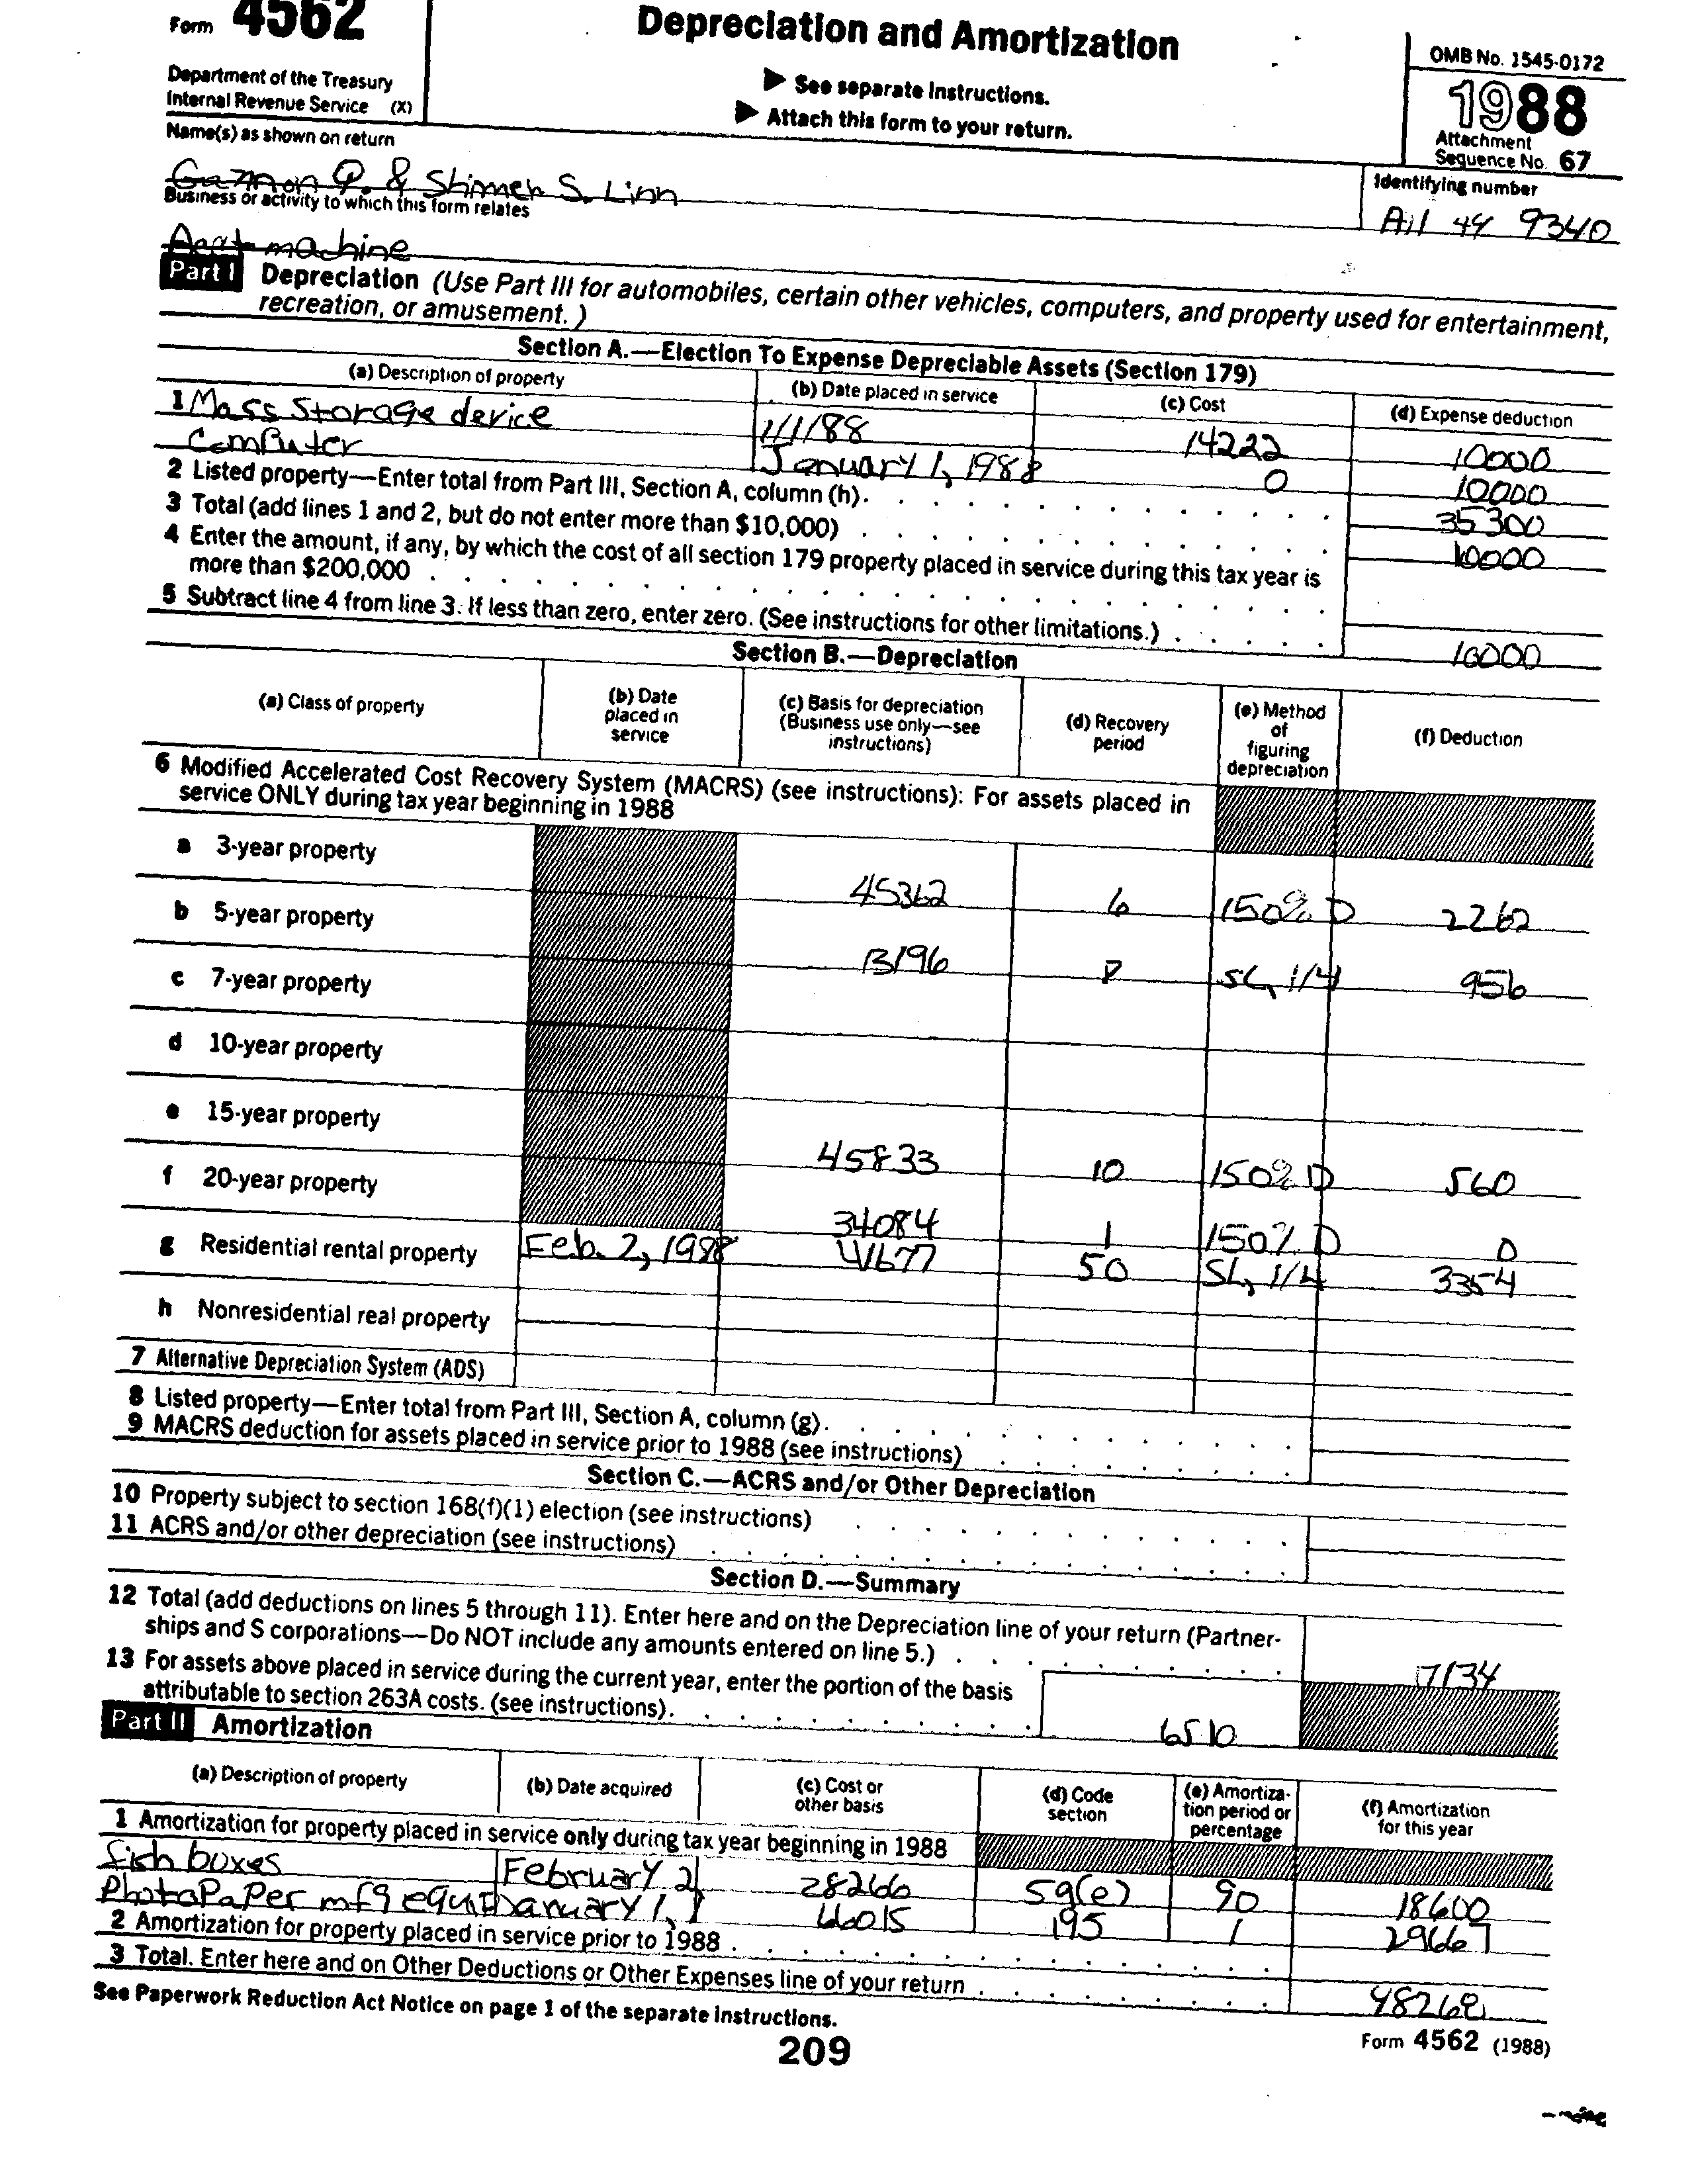 Form 4562
Department of the Treasury
Internal Revenue Service (X)
Depreciation and Amortization
▶ See separate instructions.
▶ Attach this form to your return.
OMB No. 1545-0172
1988
Attachment
Sequence No. 67
Name(s) as shown on return
Q. & Shimeh S. Linn
Identifying number
44 9340
Business or activity to which this form relates
machine
Part I Depreciation (Use Part III for automobiles, certain other vehicles, computers, and property used for entertainment,
recreation, or amusement.)
Section A.—Election To Expense Depreciable Assets (Section 179)
(a) Description of property (b) Date placed in service (c) Cost (d) Expense deduction
1 Mass Storage device 1/1/88 14222 10000
Computer January 1, 1988 0 10000
2 Listed property—Enter total from Part III, Section A, column (h). 35300
3 Total (add lines 1 and 2, but do not enter more than $10,000) 10000
4 Enter the amount, if any, by which the cost of all section 179 property placed in service during this tax year is
more than $200,000
5 Subtract line 4 from line 3. If less than zero, enter zero. (See instructions for other limitations.) 10000
Section B.—Depreciation
(a) Class of property (b) Date placed in service (c) Basis for depreciation (Business use only—see instructions) (d) Recovery period (e) Method of figuring depreciation (f) Deduction
6 Modified Accelerated Cost Recovery System (MACRS) (see instructions): For assets placed in
service ONLY during tax year beginning in 1988
a 3-year property 45362 6 150% D 2262
b 5-year property 13196 8 SL, 1/4 956
c 7-year property
d 10-year property
e 15-year property 45833 10 150% D 560
f 20-year property 34084 1 150% D 0
g Residential rental property Feb. 2, 1988 41677 50 SL, 1/4 3354
h Nonresidential real property
7 Alternative Depreciation System (ADS)
8 Listed property—Enter total from Part III, Section A, column (g).
9 MACRS deduction for assets placed in service prior to 1988 (see instructions)
Section C.—ACRS and/or Other Depreciation
10 Property subject to section 168(f)(1) election (see instructions)
11 ACRS and/or other depreciation (see instructions)
Section D.—Summary
12 Total (add deductions on lines 5 through 11). Enter here and on the Depreciation line of your return (Partner-
ships and S corporations—Do NOT include any amounts entered on line 5.) 17134
13 For assets above placed in service during the current year, enter the portion of the basis
attributable to section 263A costs. (see instructions). 6510
Part II Amortization
(a) Description of property (b) Date acquired (c) Cost or other basis (d) Code section (e) Amortization period or percentage (f) Amortization for this year
1 Amortization for property placed in service only during tax year beginning in 1988
fish boxes February 2 28266 59(e) 90 18600
PhotoPaper mfg equip January 1, 1 66015 195 1 29667
2 Amortization for property placed in service prior to 1988
3 Total. Enter here and on Other Deductions or Other Expenses line of your return 48268
See Paperwork Reduction Act Notice on page 1 of the separate instructions.
209
Form 4562 (1988)